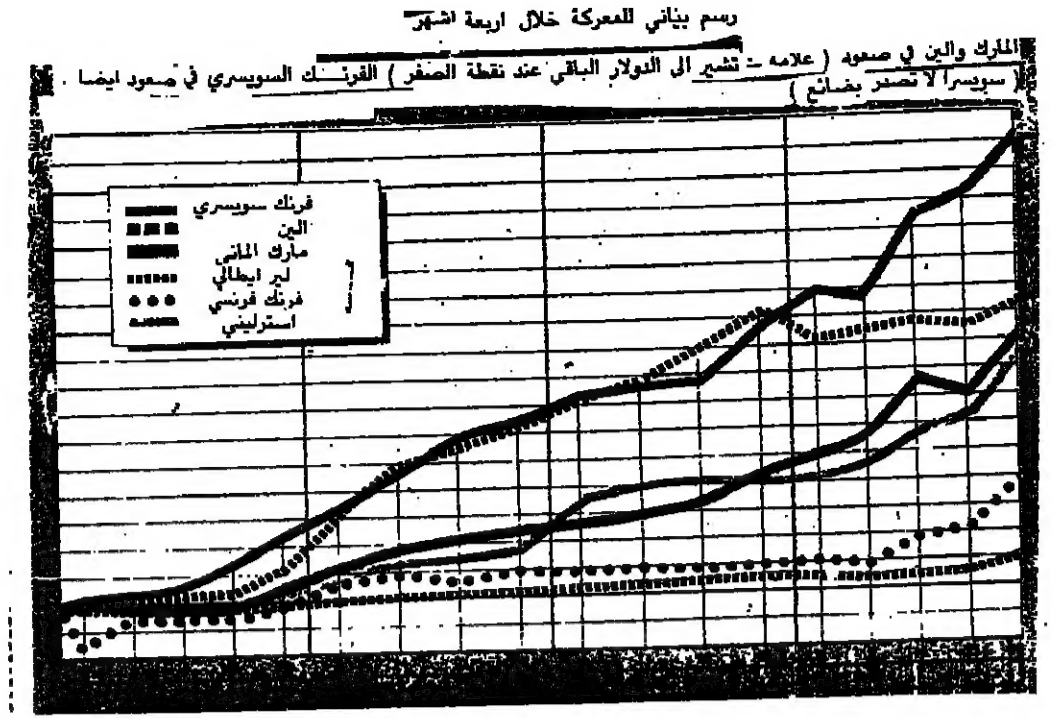 رسم بياني للمعركة خلال اربعة اشهر
المارك والين في صعود ( علامه - تشير الى الدولار الباقي عند نقطة الصفر ) الفرنك السويسري في صعود ايضا .
( سويسرا لا تصدر بضائع )
فرنك سويسري
الين
مارك الماني
لير ايطالي
فرنك فرنسي
استرليني